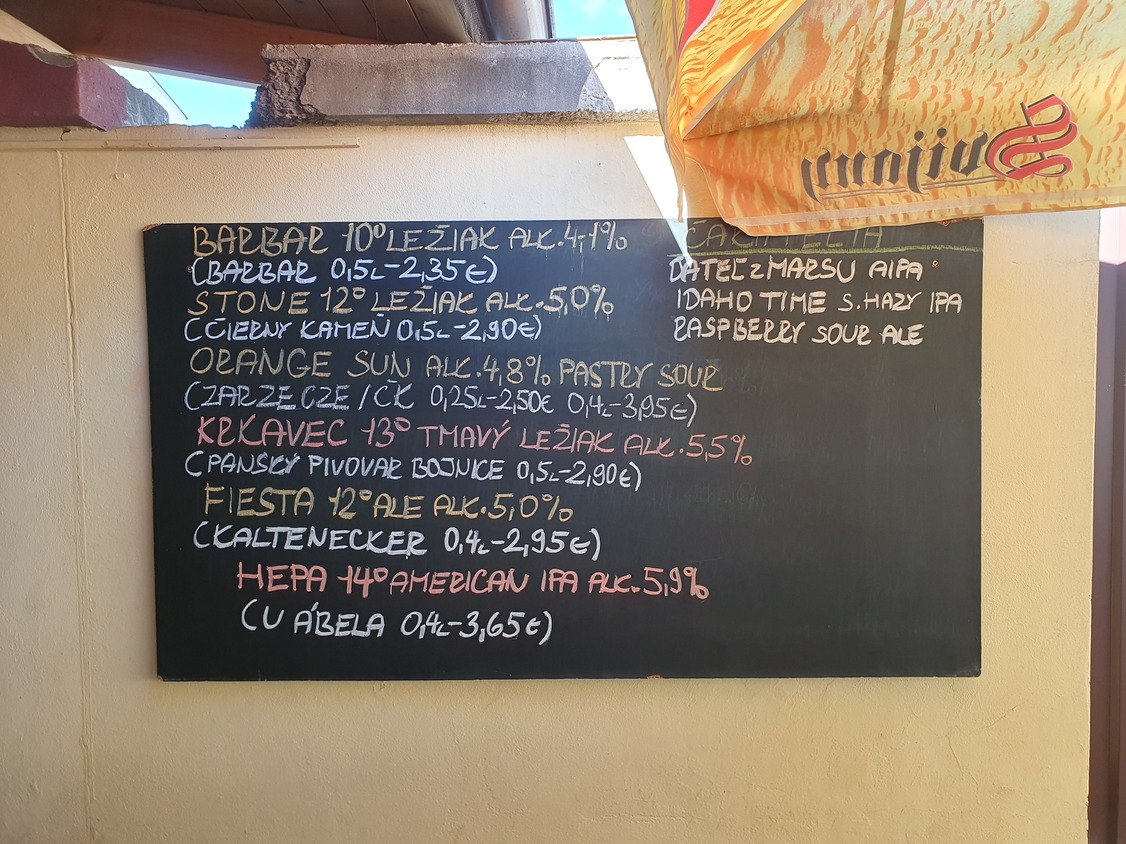 BARBAR 10° LEŽIAK ALK.4,1%
(BARBAR 0,5L-2,35€)
STONE 12° LEŽIAK ALK.5,0%
(ČIERNY KAMEŇ 0,5L-2,90€)
ORANGE SUN ALK.4,8% PASTRY SOUR
(ZARZECZE/ČK 0,25L-2,50€ 0,4L-3,95€)
KRKAVEC 13° TMAVÝ LEŽIAK ALK.5,5%
(PANSKÝ PIVOVAR BOJNICE 0,5L-2,90€)
FIESTA 12° ALE ALK.5,0%
(KALTENECKER 0,4L-2,95€)
HEPA 14° AMERICAN IPA ALK.5,9%
(U ÁBELA 0,4L-3,65€)
DATEĽ z MARSU AIPA
IDAHO TIME S.HAZY IPA
RASPBERRY SOUR ALE